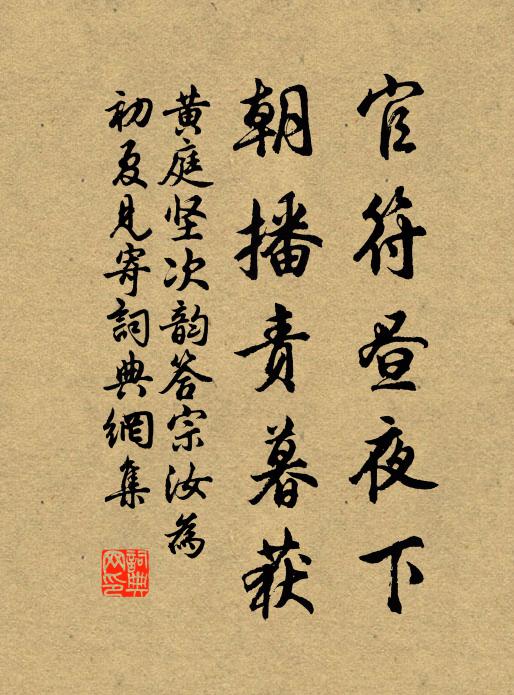 官符昼夜下
朝播责暮获
黄庭坚次韵答宗汝为
初夏见寄詞典網集
詞典网印